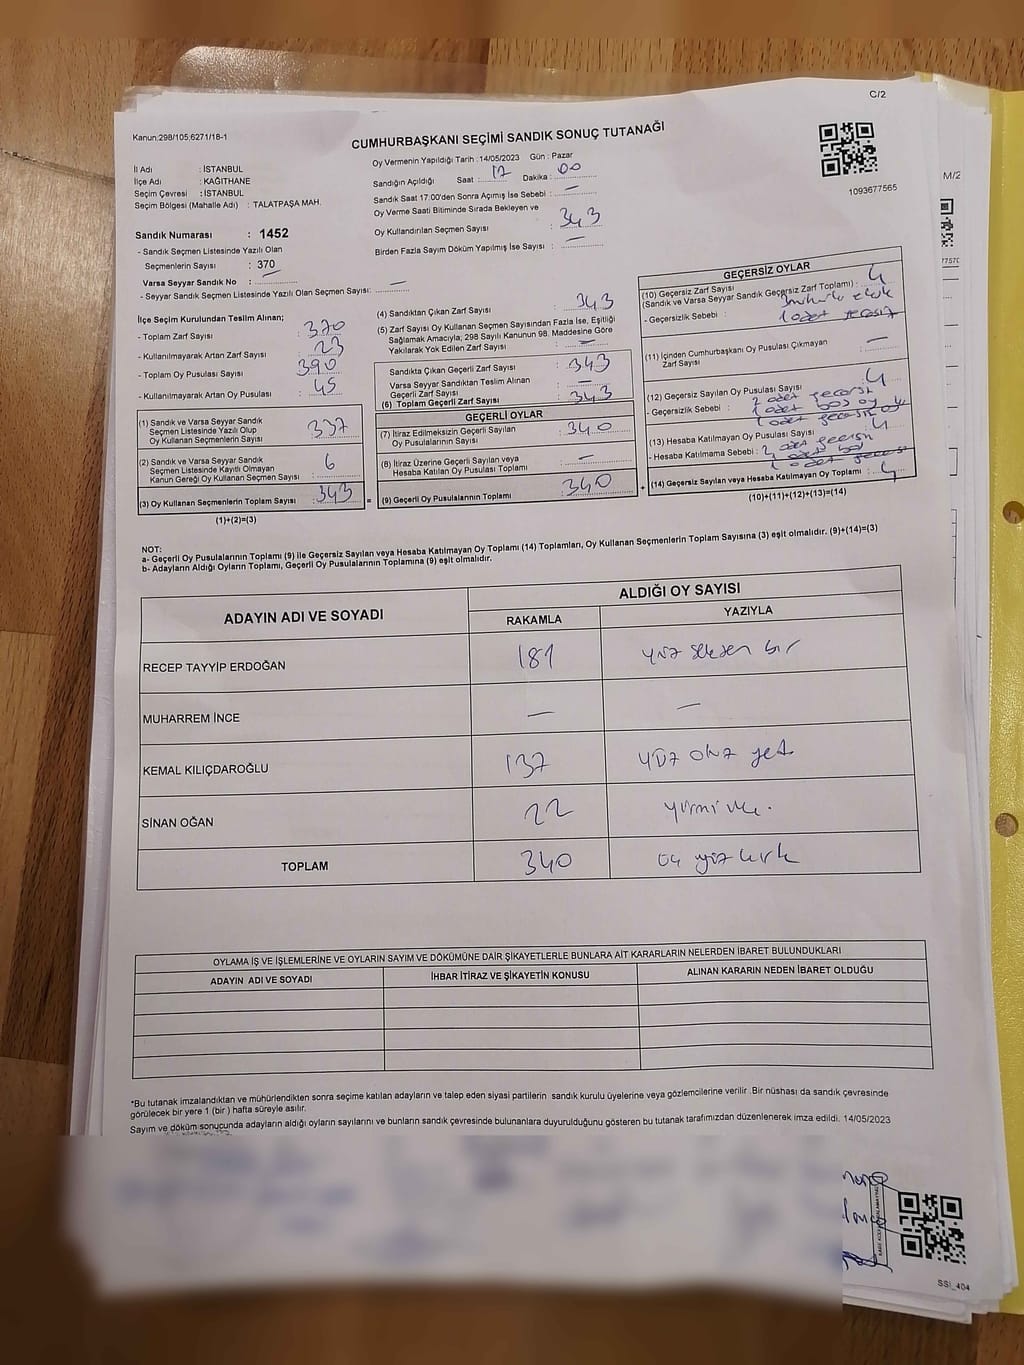 C/2
Kanun:298/105,6271/18-1
CUMHURBAŞKANI SEÇİMİ SANDIK SONUÇ TUTANAĞI
1093677565
M/2
İl Adı : İSTANBUL
İlçe Adı : KAĞITHANE
Seçim Çevresi : İSTANBUL
Seçim Bölgesi (Mahalle Adı) : TALATPAŞA MAH.
Oy Vermenin Yapıldığı Tarih : 14/05/2023 Gün : Pazar
Sandığın Açıldığı Saat : 17 Dakika : 00
Sandık Saat 17:00'den Sonra Açılmış İse Sebebi : —
Oy Verme Saati Bitiminde Sırada Bekleyen ve
Oy Kullandırılan Seçmen Sayısı : 343
Birden Fazla Sayım Döküm Yapılmış İse Sayısı : —
Sandık Numarası : 1452
- Sandık Seçmen Listesinde Yazılı Olan
Seçmenlerin Sayısı : 370
Varsa Seyyar Sandık No : —
- Seyyar Sandık Seçmen Listesinde Yazılı Olan Seçmen Sayısı: —
İlçe Seçim Kurulundan Teslim Alınan;
- Toplam Zarf Sayısı : 370
- Kullanılmayarak Artan Zarf Sayısı : 23
- Toplam Oy Pusulası Sayısı : 390
- Kullanılmayarak Artan Oy Pusulası : 45
(1) Sandık ve Varsa Seyyar Sandık
Seçmen Listesinde Yazılı Olup
Oy Kullanan Seçmenlerin Sayısı : 337
(2) Sandık ve Varsa Seyyar Sandık
Seçmen Listesinde Kayıtlı Olmayan
Kanun Gereği Oy Kullanan Seçmen Sayısı : 6
(3) Oy Kullanan Seçmenlerin Toplam Sayısı : 343
(1)+(2)=(3)
(4) Sandıktan Çıkan Zarf Sayısı : 343
(5) Zarf Sayısı Oy Kullanan Seçmen Sayısından Fazla İse, Eşitliği
Sağlamak Amacıyla; 298 Sayılı Kanunun 98. Maddesine Göre
Yakılarak Yok Edilen Zarf Sayısı : —
Sandıkta Çıkan Geçerli Zarf Sayısı : 343
Varsa Seyyar Sandıktan Teslim Alınan
Geçerli Zarf Sayısı : —
(6) Toplam Geçerli Zarf Sayısı : 343
GEÇERLİ OYLAR
(7) İtiraz Edilmeksizin Geçerli Sayılan
Oy Pusulalarının Sayısı : 340
(8) İtiraz Üzerine Geçerli Sayılan veya
Hesaba Katılan Oy Pusulası Toplamı : —
= (9) Geçerli Oy Pusulalarının Toplamı : 340 +
GEÇERSİZ OYLAR
(10) Geçersiz Zarf Sayısı
(Sandık ve Varsa Seyyar Sandık Geçersiz Zarf Toplamı) : 4
- Geçersizlik Sebebi :
1 adet geçersiz
(11) İçinden Cumhurbaşkanı Oy Pusulası Çıkmayan
Zarf Sayısı : —
(12) Geçersiz Sayılan Oy Pusulası Sayısı : 4
- Geçersizlik Sebebi : 2 adet geçersiz
1 adet boş oy
1 adet geçersiz oy
(13) Hesaba Katılmayan Oy Pusulası Sayısı : 4
- Hesaba Katılmama Sebebi : 2 adet geçersiz
1 adet boş
1 adet geçersiz
(14) Geçersiz Sayılan veya Hesaba Katılmayan Oy Toplamı : 4
(10)+(11)+(12)+(13)=(14)
NOT:
a- Geçerli Oy Pusulalarının Toplamı (9) ile Geçersiz Sayılan veya Hesaba Katılmayan Oy Toplamı (14) Toplamları, Oy Kullanan Seçmenlerin Toplam Sayısına (3) eşit olmalıdır. (9)+(14)=(3)
b- Adayların Aldığı Oyların Toplamı, Geçerli Oy Pusulalarının Toplamına (9) eşit olmalıdır.
ADAYIN ADI VE SOYADI ALDIĞI OY SAYISI
RAKAMLA YAZIYLA
RECEP TAYYİP ERDOĞAN 181 yüz seksen bir
MUHARREM İNCE — —
KEMAL KILIÇDAROĞLU 137 yüz otuz yedi
SİNAN OĞAN 22 yirmi iki.
TOPLAM 340 üç yüz kırk
OYLAMA İŞ VE İŞLEMLERİNE VE OYLARIN SAYIM VE DÖKÜMÜNE DAİR ŞİKAYETLERLE BUNLARA AİT KARARLARIN NELERDEN İBARET BULUNDUKLARI
ADAYIN ADI VE SOYADI İHBAR İTİRAZ VE ŞİKAYETİN KONUSU ALINAN KARARIN NEDEN İBARET OLDUĞU
*Bu tutanak imzalandıktan ve mühürlendikten sonra seçime katılan adayların ve talep eden siyasi partilerin sandık kurulu üyelerine veya gözlemcilerine verilir .Bir nüshası da sandık çevresinde
görülecek bir yere 1 (bir ) hafta süreyle asılır.
Sayım ve döküm sonucunda adayların aldığı oyların sayılarını ve bunların sandık çevresinde bulunanlara duyurulduğunu gösteren bu tutanak tarafımızdan düzenlenerek imza edildi. 14/05/2023
SSİ_404